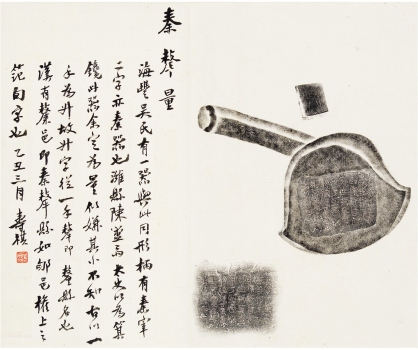 秦量
海豐吳氏有一器與此同形柄有秦宰
二字亦秦器也濰縣陳簠齋太史以為箕
此器余定為量似嫌其小不知古以一
手為升故升字從一手即縣名也
漢有邑即秦縣如邑權上之
字也乙丑三月壽祺